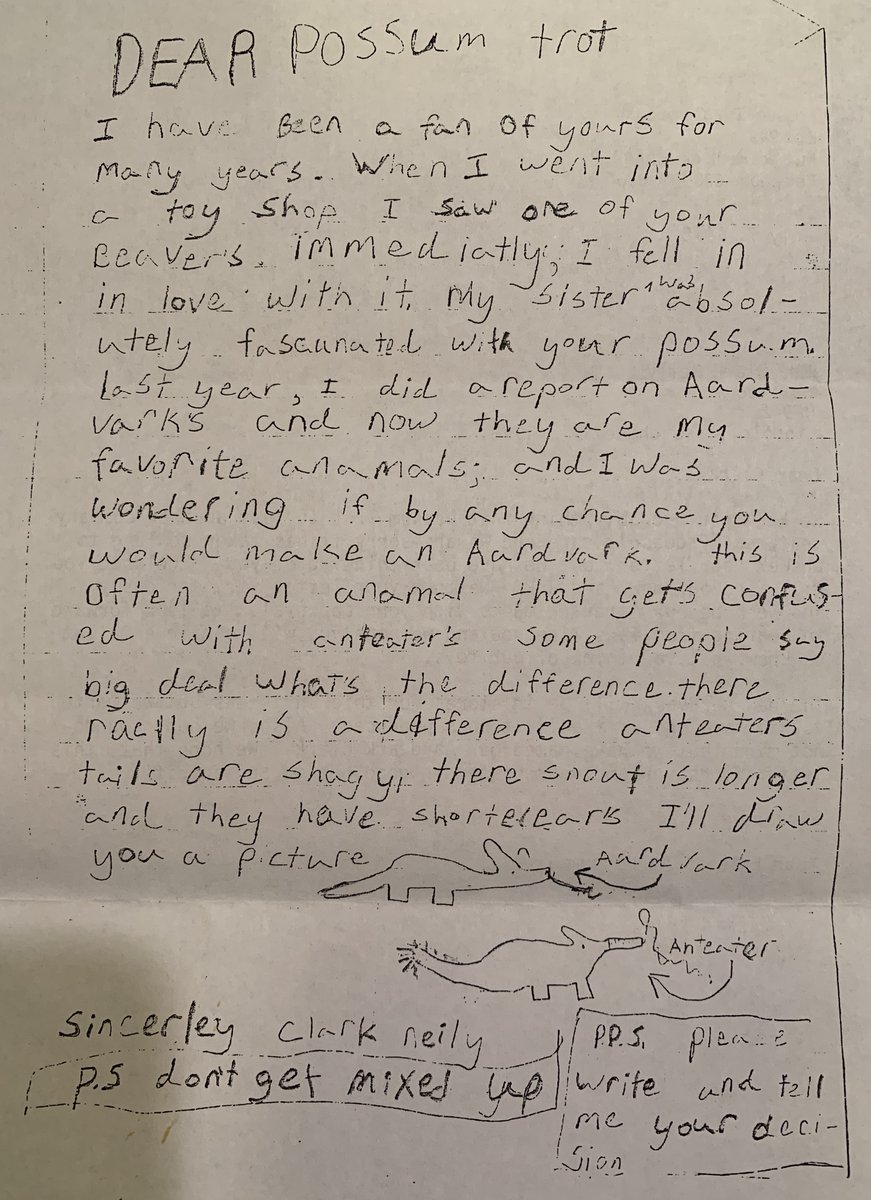 DEAR POSSUM trot
I have Been a fan of yours for
many years. When I went into
a toy shop I saw one of your
Beaver's. immediatly; I fell in
in love with it. My sister ^was absol-
utely fascunated with your possum.
Last year, I did a report on Aard-
vark's and now they are my
favorite anamals; and I was
wondering if by any chance you
would make an Aardvark. this is
often an anamal that get's confus-
ed with anteater's some people say
big deal what's the difference. there
raelly is a difference anteaters
tails are shagy, there snout is longer
and they have shorter ears I'll draw
you a picture
Aardvark
Anteater
Sincerley Clark neily
P.S don't get mixed up
P.P.S. please
write and tell
me your deci-
sion